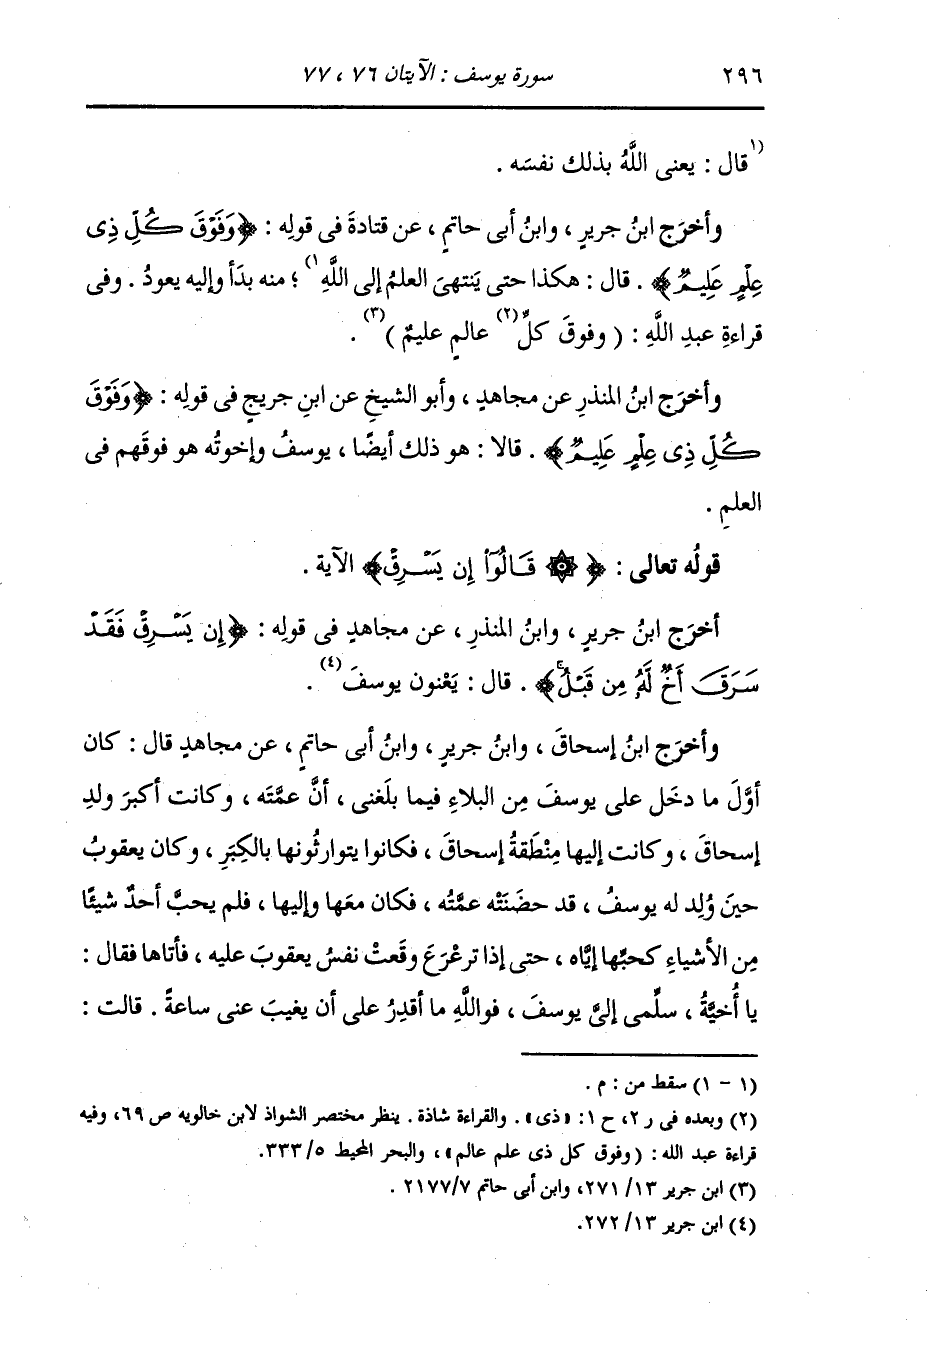 ٢٩٦ سورة يوسف : الآيتان ٧٦ ، ٧٧
(١قال : يعنى اللَّهُ بذلك نفسَه .
وأخرَج ابنُ جريرٍ ، وابنُ أبى حاتمٍ ، عن قتادةَ فى قولِه : ﴿وَفَوْقَ كُلِّ ذِى
عِلْمٍ عَلِيمٌ﴾ . قال : هكذا حتى يَنتهىَ العلمُ إلى اللَّهِ١) ؛ منه بدَأ وإليه يعودُ . وفى
قراءةِ عبدِ اللَّهِ : ( وفوقَ كلِّ(٢) عالمٍ عليمٌ )(٣) .
وأخرَج ابنُ المنذرِ عن مجاهدٍ ، وأبو الشيخِ عن ابنِ جريجٍ فى قولِه : ﴿وَفَوْقَ
كُلِّ ذِى عِلْمٍ عَلِيمٌ﴾ . قالا : هو ذلك أيضًا ، يوسفُ وإخوتُه هو فوقَهم فى
العلمِ .
قولُه تعالى : ﴿ ۞ قَالُوٓا۟ إِن يَسْرِقْ﴾ الآية .
أخرَج ابنُ جريرٍ ، وابنُ المنذرِ ، عن مجاهدٍ فى قولِه : ﴿إِن يَسْرِقْ فَقَدْ
سَرَقَ أَخٌ لَّهُۥ مِن قَبْلُۚ﴾ . قال : يَعْنون يوسفَ(٤) .
وأخرَج ابنُ إسحاقَ ، وابنُ جريرٍ ، وابنُ أبى حاتمٍ ، عن مجاهدٍ قال : كان
أوَّلَ ما دخَل على يوسفَ مِن البلاءِ فيما بلَغنى ، أنَّ عمَّتَه ، وكانت أكبرَ ولدِ
إسحاقَ ، وكانت إليها مِنْطَقةُ إسحاقَ ، فكانوا يتوارثُونها بالكِبَرِ ، وكان يعقوبُ
حينَ وُلِد له يوسفُ ، قد حضَنَتْه عمَّتُه ، فكان معَها وإليها ، فلم يحبَّ أحدٌ شيئًا
مِن الأشياءِ كحبِّها إيَّاه ، حتى إذا ترعْرَعَ وقَعتْ نفسُ يعقوبَ عليه ، فأتاها فقال :
يا أُخيَّةُ ، سلِّمى إلىَّ يوسفَ ، فواللَّهِ ما أقدِرُ على أن يغيبَ عنى ساعةً . قالت :
(١ - ١) سقط من : م .
(٢) وبعده فى ر ٢، ح ١: «ذى» . والقراءة شاذة . ينظر مختصر الشواذ لابن خالويه ص ٦٩، وفيه
قراءة عبد الله : (وفوق كل ذى علم عالم»، والبحر المحيط ٥/ ٣٣٣.
(٣) ابن جرير ١٣/ ٢٧١، وابن أبى حاتم ٧/ ٢١٧٧ .
(٤) ابن جرير ١٣/ ٢٧٢.